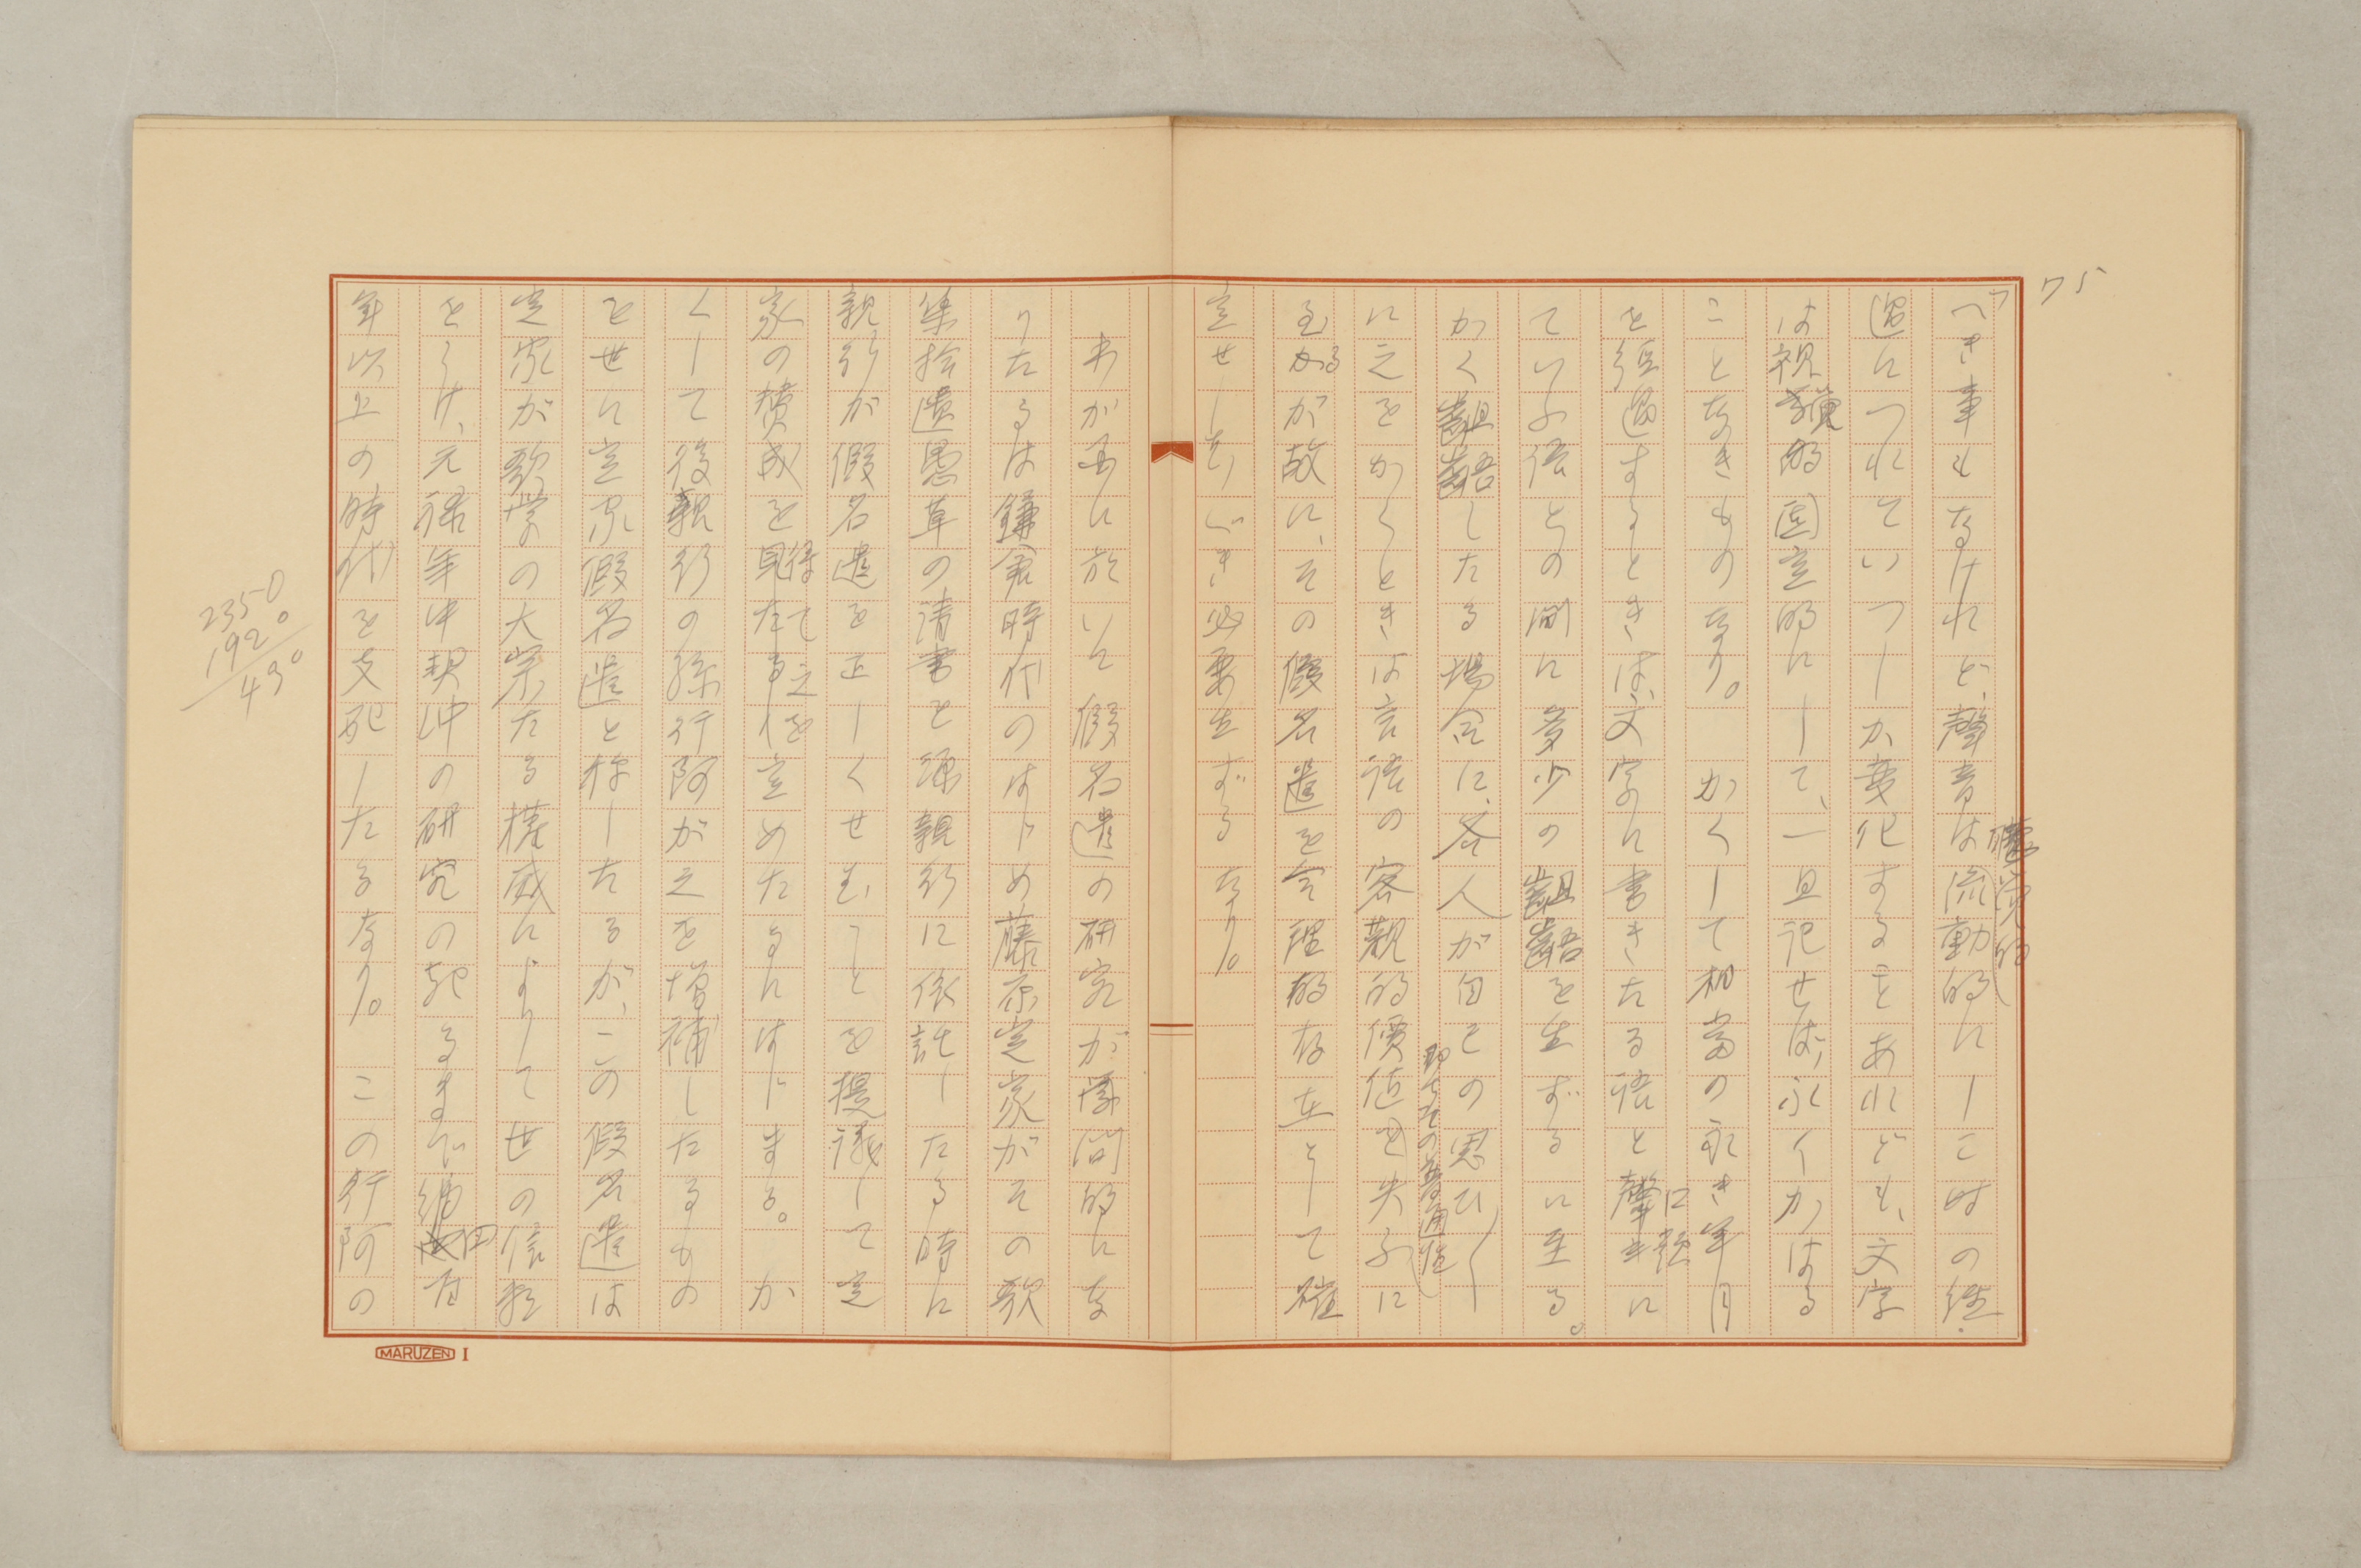 75
べき事もなけれど、聲音は流動的にしこ時の經
聽覺的
過につれていつしか變化するをあれども、文字
は視覺的固定的にして、一旦記せば、永くかはる
ことなきものなり。かくして相當の永き年月
を經過するときは、文字に書きたる語と聲に
口語
ていふ語との間に多少の齟齬を生ずるに至る。
かく齟齬したる場合に、各人が自己の思ひ〳〵
に之をかくときは言語の客觀的價値を失ふに
即ちその普通性
至るが故に、その假名遣を合理的な在として確
定せしむべき必要生ずるなり。
わが國に於いて假名遣の研究が學問的にな
りたるは鎌倉時代のはじめ藤原定家がその歌
集拾遺愚草の清書を源親行に依託したる時に
親行が假名遣を正しくせむことを提議して定
家の賛成を得て之を定めたるにはじまる。か
くして後親行の孫行阿が之を增補したるもの
を世に定家假名遣と稱したるが、この假名遣は
定家が歌學の大宗たる權威によりて世の信頼
をうけ、元祿年中契沖の研究の起るまで四百
年以上の時代を支配したるなり。この行阿の
2350
1920
430
MARUZEN I